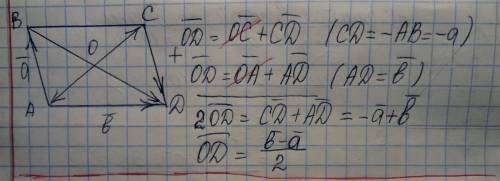 B C
O
a̅
A D
b̅
+ O̅D̅ = O̅C̅ + C̅D̅ (CD = -AB = -a̅)
O̅D̅ = O̅A̅ + A̅D̅ (AD = B̅)
2O̅D̅ = C̅D̅ + A̅D̅ = -a̅ + b̅
O̅D̅ = (b̅ - a̅)/2